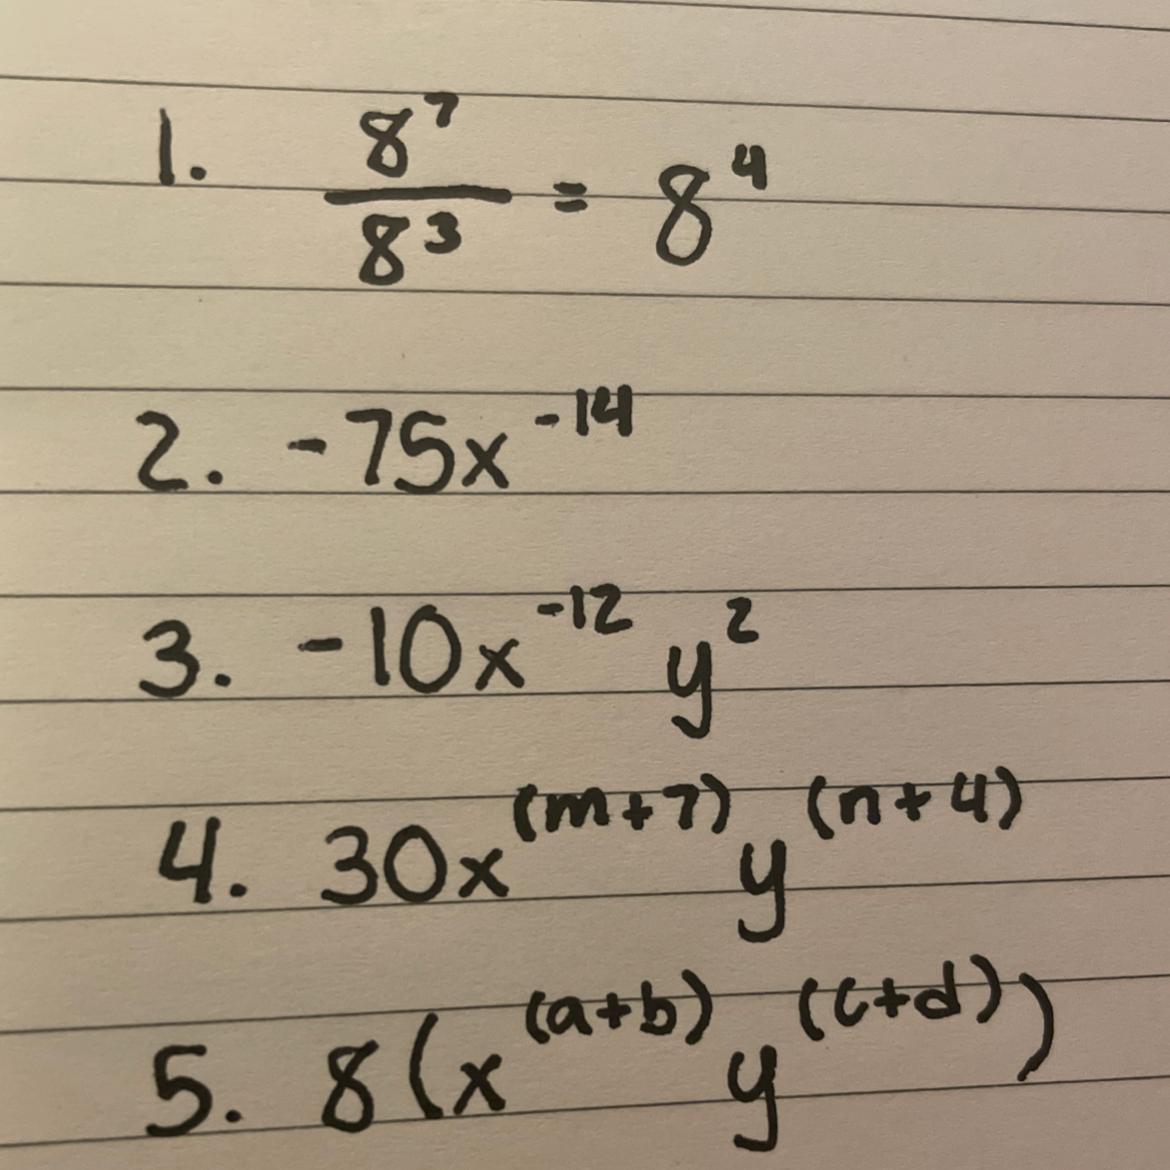 1. 8^7/8^3 = 8^4
2. -75x^-14
3. -10x^-12 y^2
4. 30x^(m+7) y^(n+4)
5. 8(x^(a+b) y^(c+d))